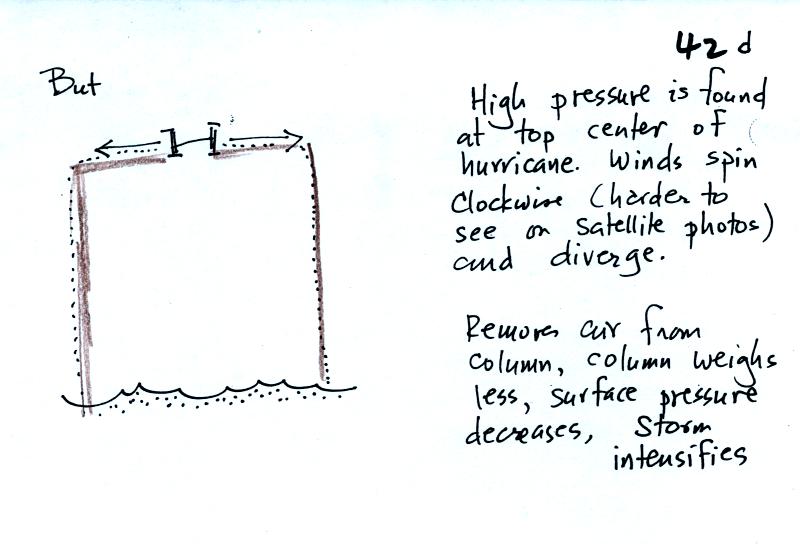 42 d
But
H
High pressure is found
at top center of
hurricane. Winds spin
clockwise (harder to
see on satellite photos)
and diverge.
Removes air from
column, column weighs
less, surface pressure
decreases, Storm
intensifies